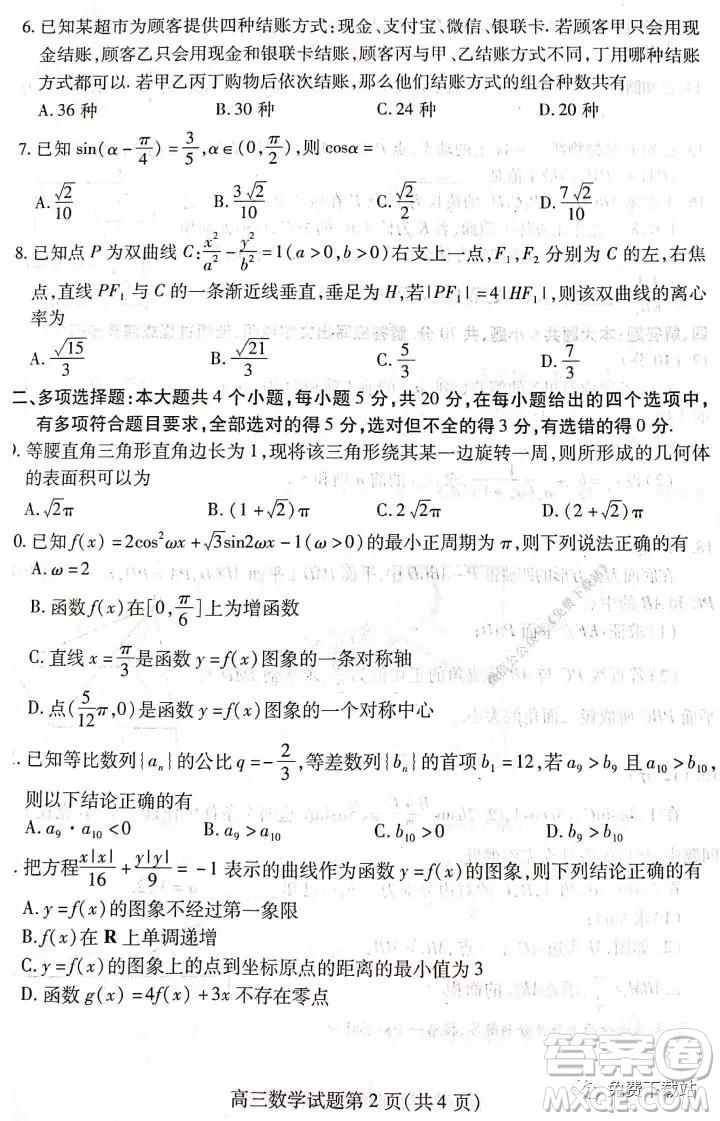 6. 已知某超市为顾客提供四种结账方式:现金、支付宝、微信、银联卡. 若顾客甲只会用现
金结账,顾客乙只会用现金和银联卡结账,顾客丙与甲、乙结账方式不同,丁用哪种结账
方式都可以. 若甲乙丙丁购物后依次结账,那么他们结账方式的组合种数共有
A. 36 种 B. 30 种 C. 24 种 D. 20 种
7. 已知 sin(α - π/4) = 3/5, α∈(0, π/2), 则 cosα =
A. √2/10 B. 3√2/10 C. √2/2 D. 7√2/10
8. 已知点 P 为双曲线 C: x²/a² - y²/b² = 1(a > 0, b > 0) 右支上一点, F₁, F₂ 分别为 C 的左,右焦
点,直线 PF₁ 与 C 的一条渐近线垂直,垂足为 H,若|PF₁| = 4|HF₁|,则该双曲线的离心
率为
A. √15/3 B. √21/3 C. 5/3 D. 7/3
二、多项选择题:本大题共 4 个小题,每小题 5 分,共 20 分,在每小题给出的四个选项中,
有多项符合题目要求,全部选对的得 5 分,选对但不全的得 3 分,有选错的得 0 分.
. 等腰直角三角形直角边长为 1,现将该三角形绕其某一边旋转一周,则所形成的几何体
的表面积可以为
A. √2π B. (1 + √2)π C. 2√2π D. (2 + √2)π
0. 已知 f(x) = 2cos²ωx + √3sin2ωx - 1(ω > 0) 的最小正周期为 π,则下列说法正确的有
A. ω = 2
B. 函数 f(x) 在 [0, π/6] 上为增函数
C. 直线 x = π/3 是函数 y = f(x) 图象的一条对称轴
D. 点(5/12π, 0) 是函数 y = f(x) 图象的一个对称中心
. 已知等比数列{aₙ} 的公比 q = -2/3,等差数列{bₙ} 的首项 b₁ = 12,若 a₉ > b₉ 且 a₁₀ > b₁₀,
则以下结论正确的有
A. a₉·a₁₀ < 0 B. a₉ > a₁₀ C. b₁₀ > 0 D. b₉ > b₁₀
. 把方程 x|x|/16 + y|y|/9 = -1 表示的曲线作为函数 y = f(x) 的图象,则下列结论正确的有
A. y = f(x) 的图象不经过第一象限
B. f(x) 在 R 上单调递增
C. y = f(x) 的图象上的点到坐标原点的距离的最小值为 3
D. 函数 g(x) = 4f(x) + 3x 不存在零点
高三数学试题第 2 页(共 4 页)
答案圈
免费下载站